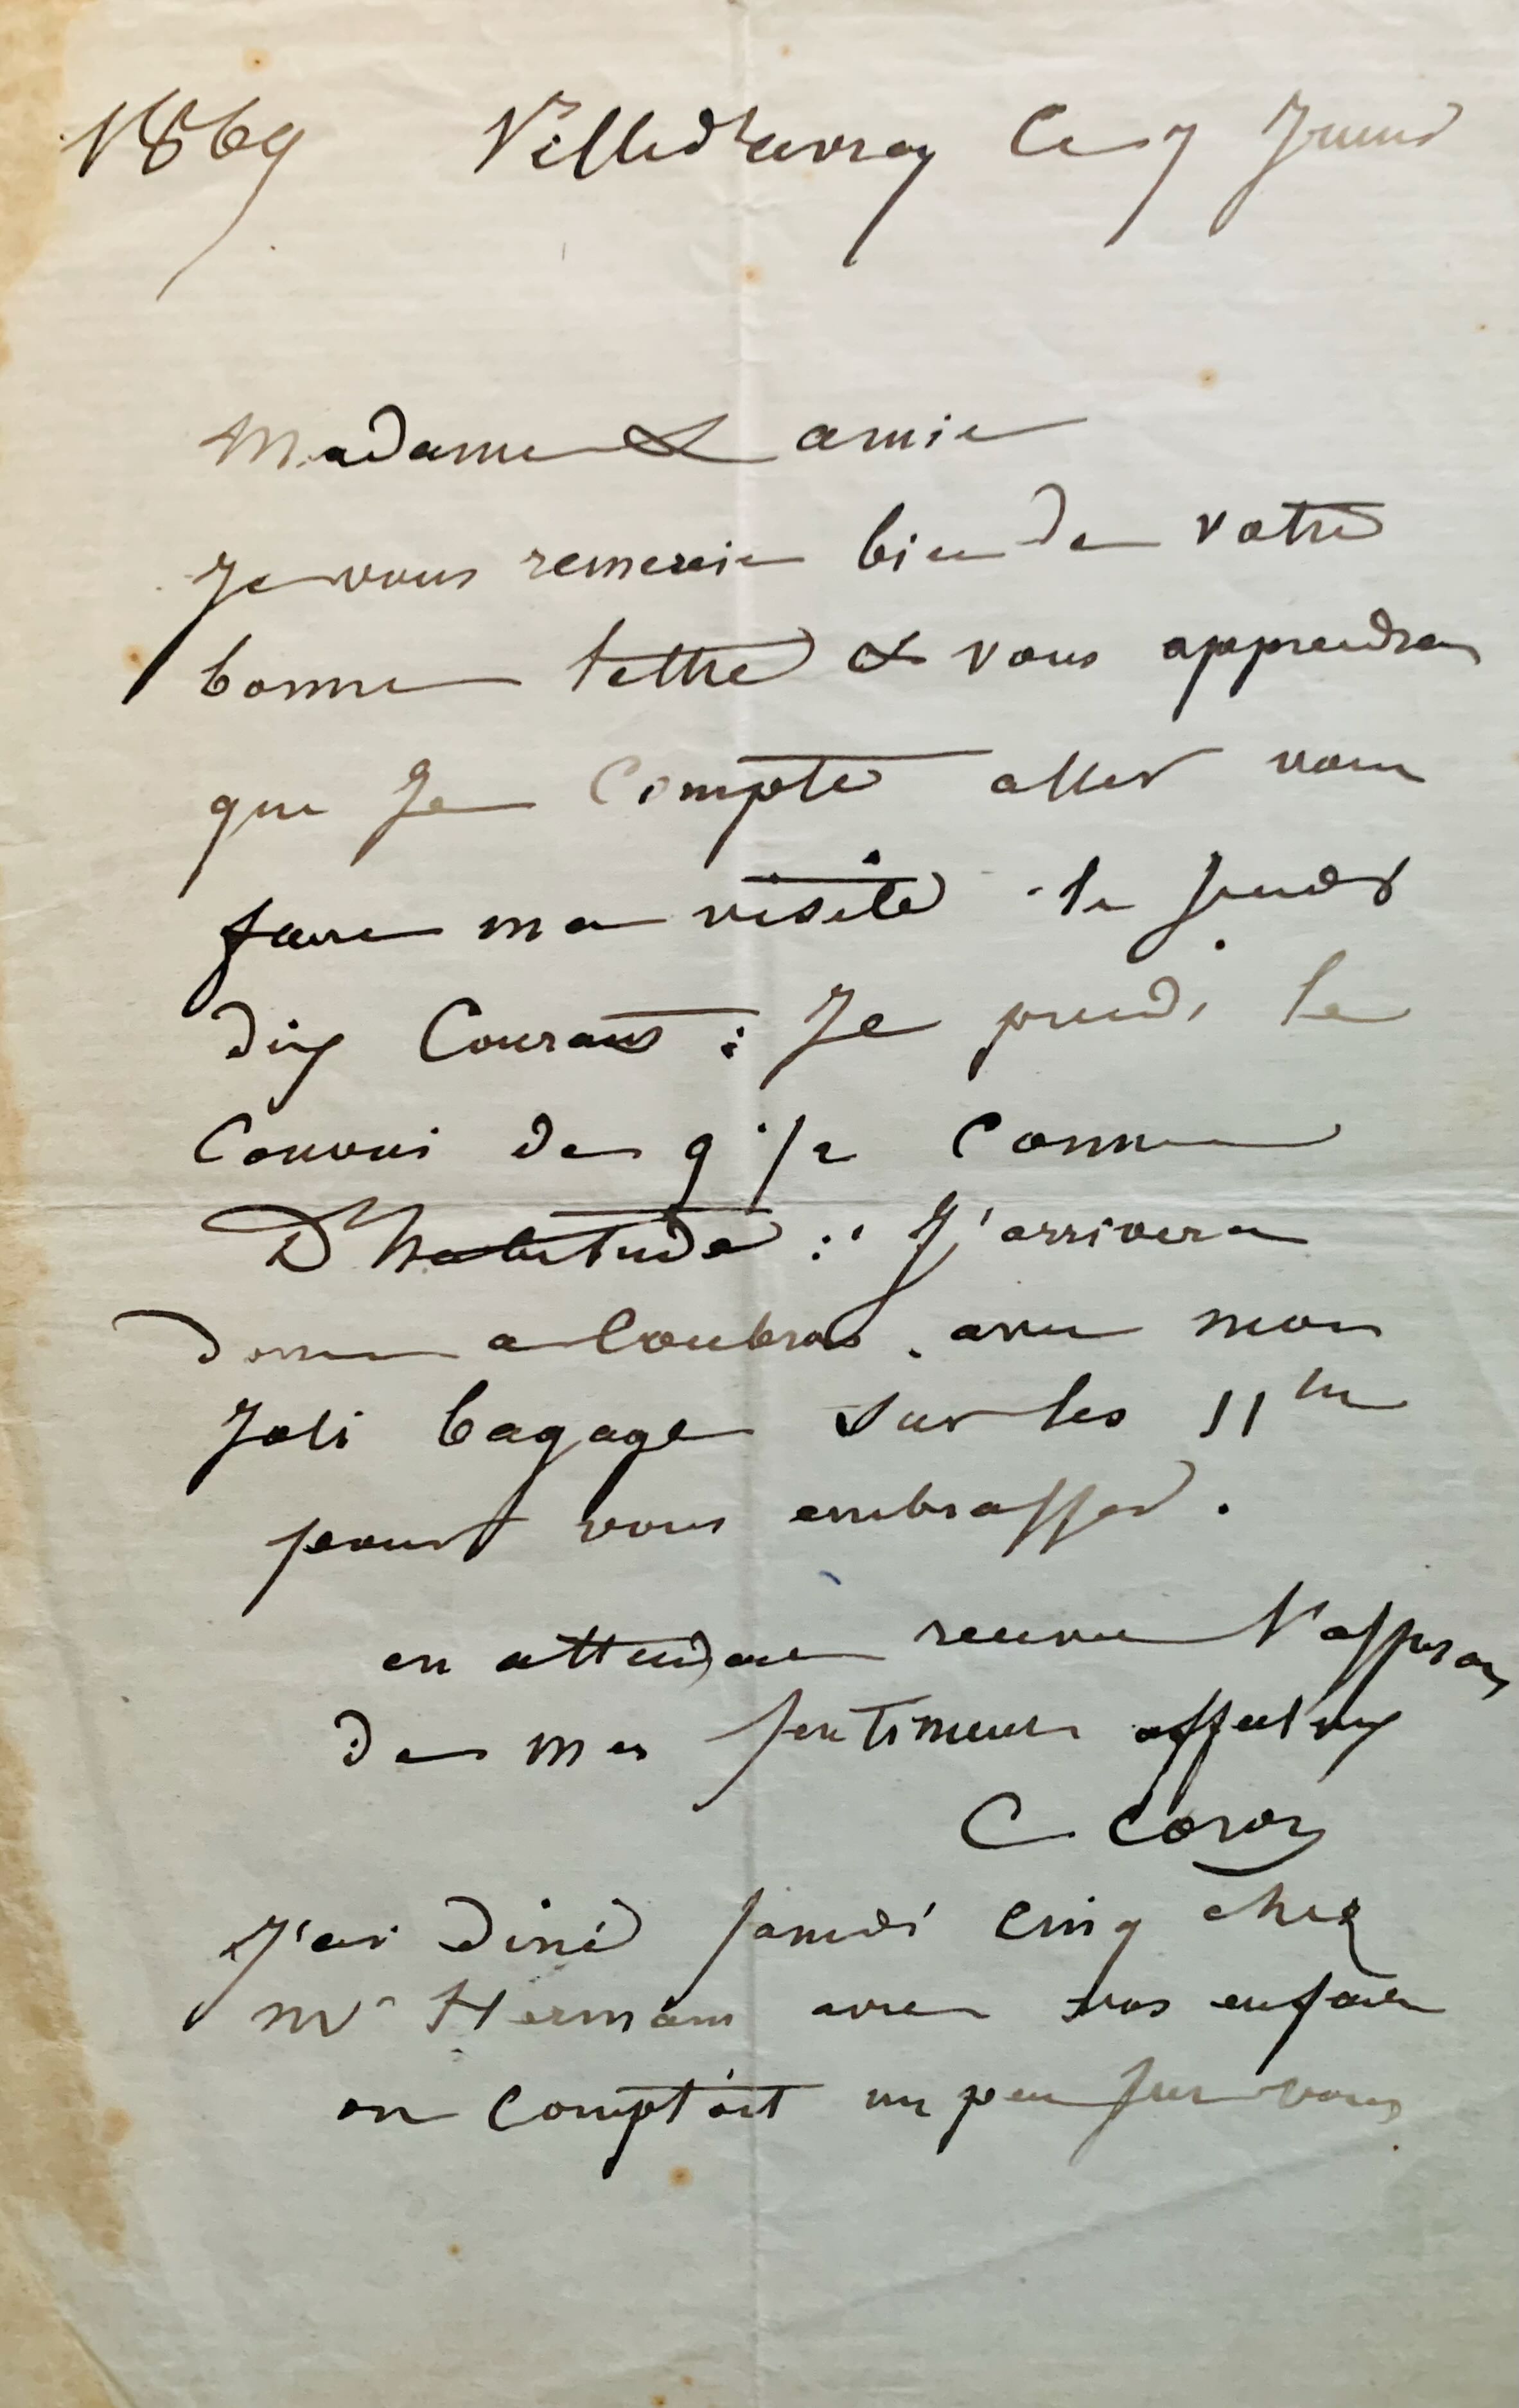 1869 Villed'avray Ce 7 Juin
Madame & amie
Je vous remercie bien de votre
bonne lettre & vous apprendrai
que Je Compte aller vous
faire ma visite le Jeudi
dix Courant : Je prends le
Convoi de 9 1/2 Comme
D'habitude : J'arriverai
donc a Coubron avec mon
Joli bagage sur les 11 h
pour vous embrasser .
en attendant recevez l'assurance
de mes sentiments affectueux
C. Corot
J'ai diné samedi cinq chez
Mr Hermann avec vos enfants
on comptait un peu sur vous